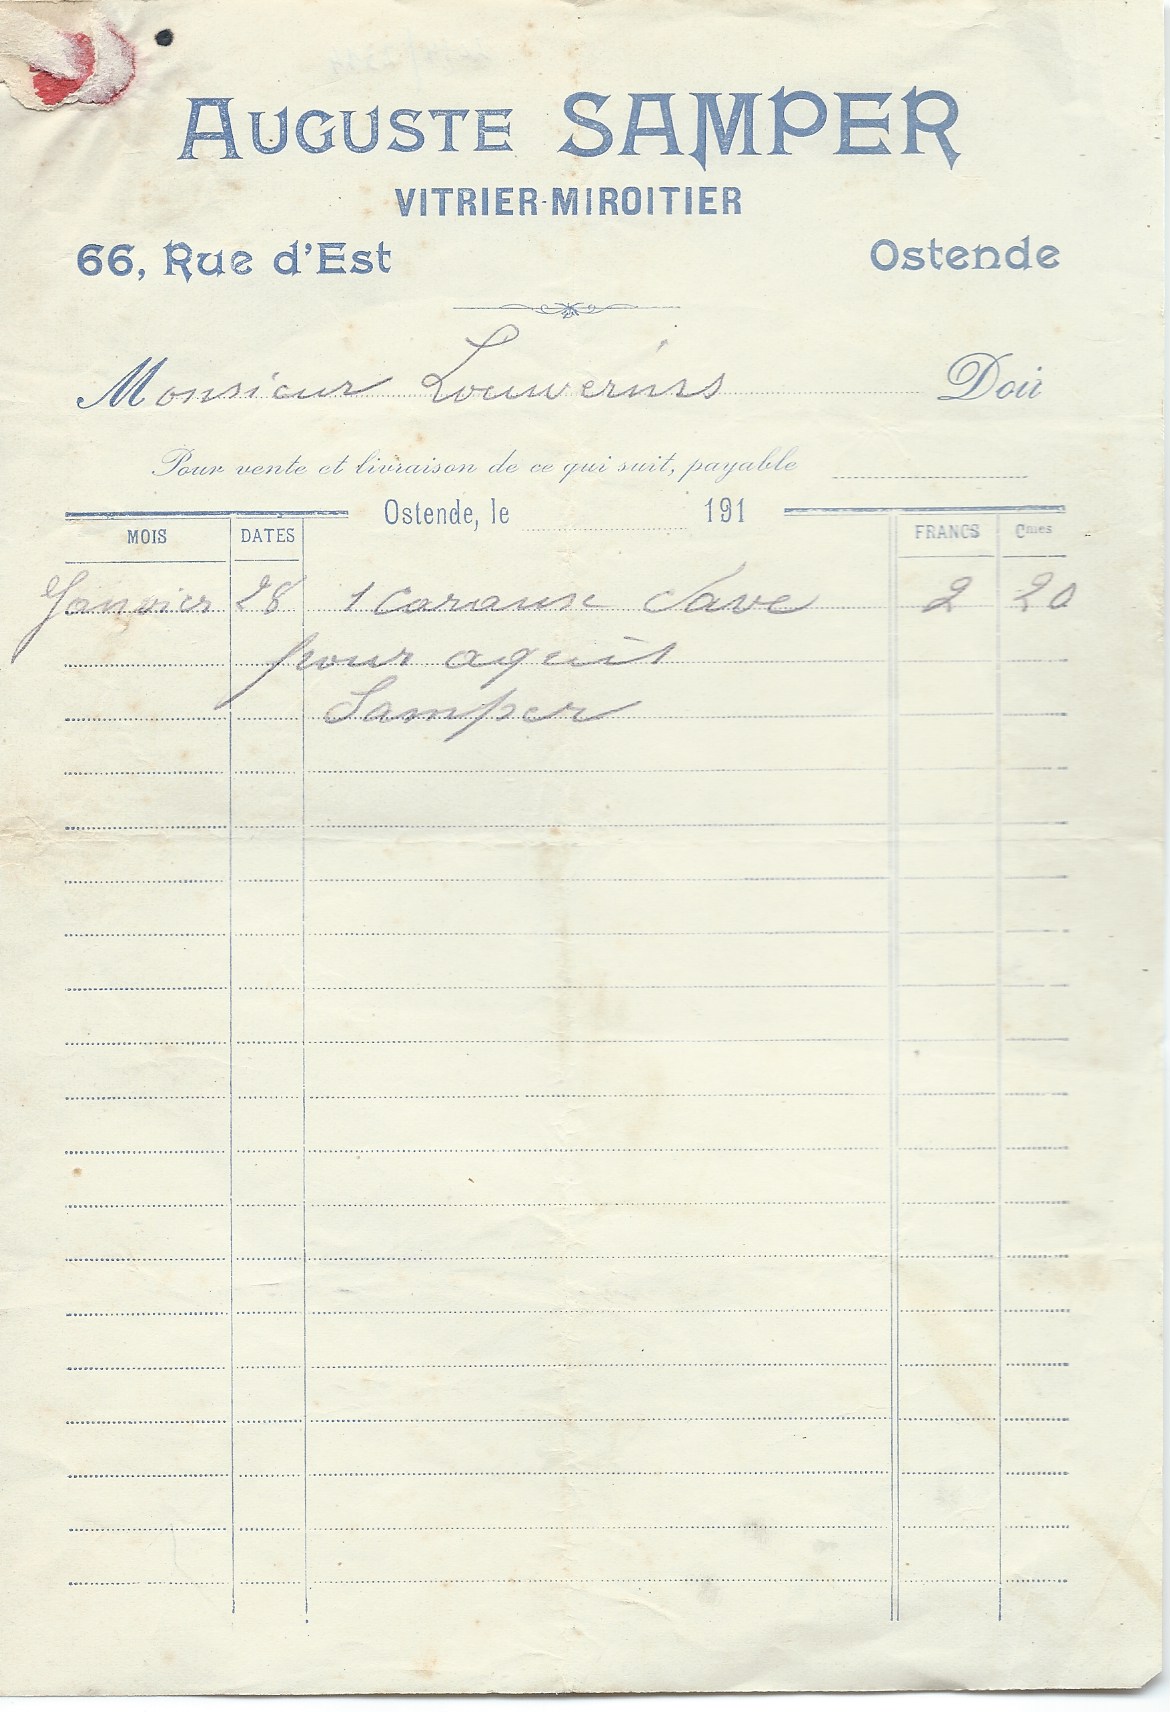 AUGUSTE SAMPER
VITRIER-MIROITIER
66, Rue d'Est Ostende
Monsieur Louwerins Doit
Pour vente et livraison de ce qui suit, payable
Ostende, le 191
MOIS DATES FRANCS Cmes
Janvier 28 1 Carause Cave 2 20
pour aquit
Samper